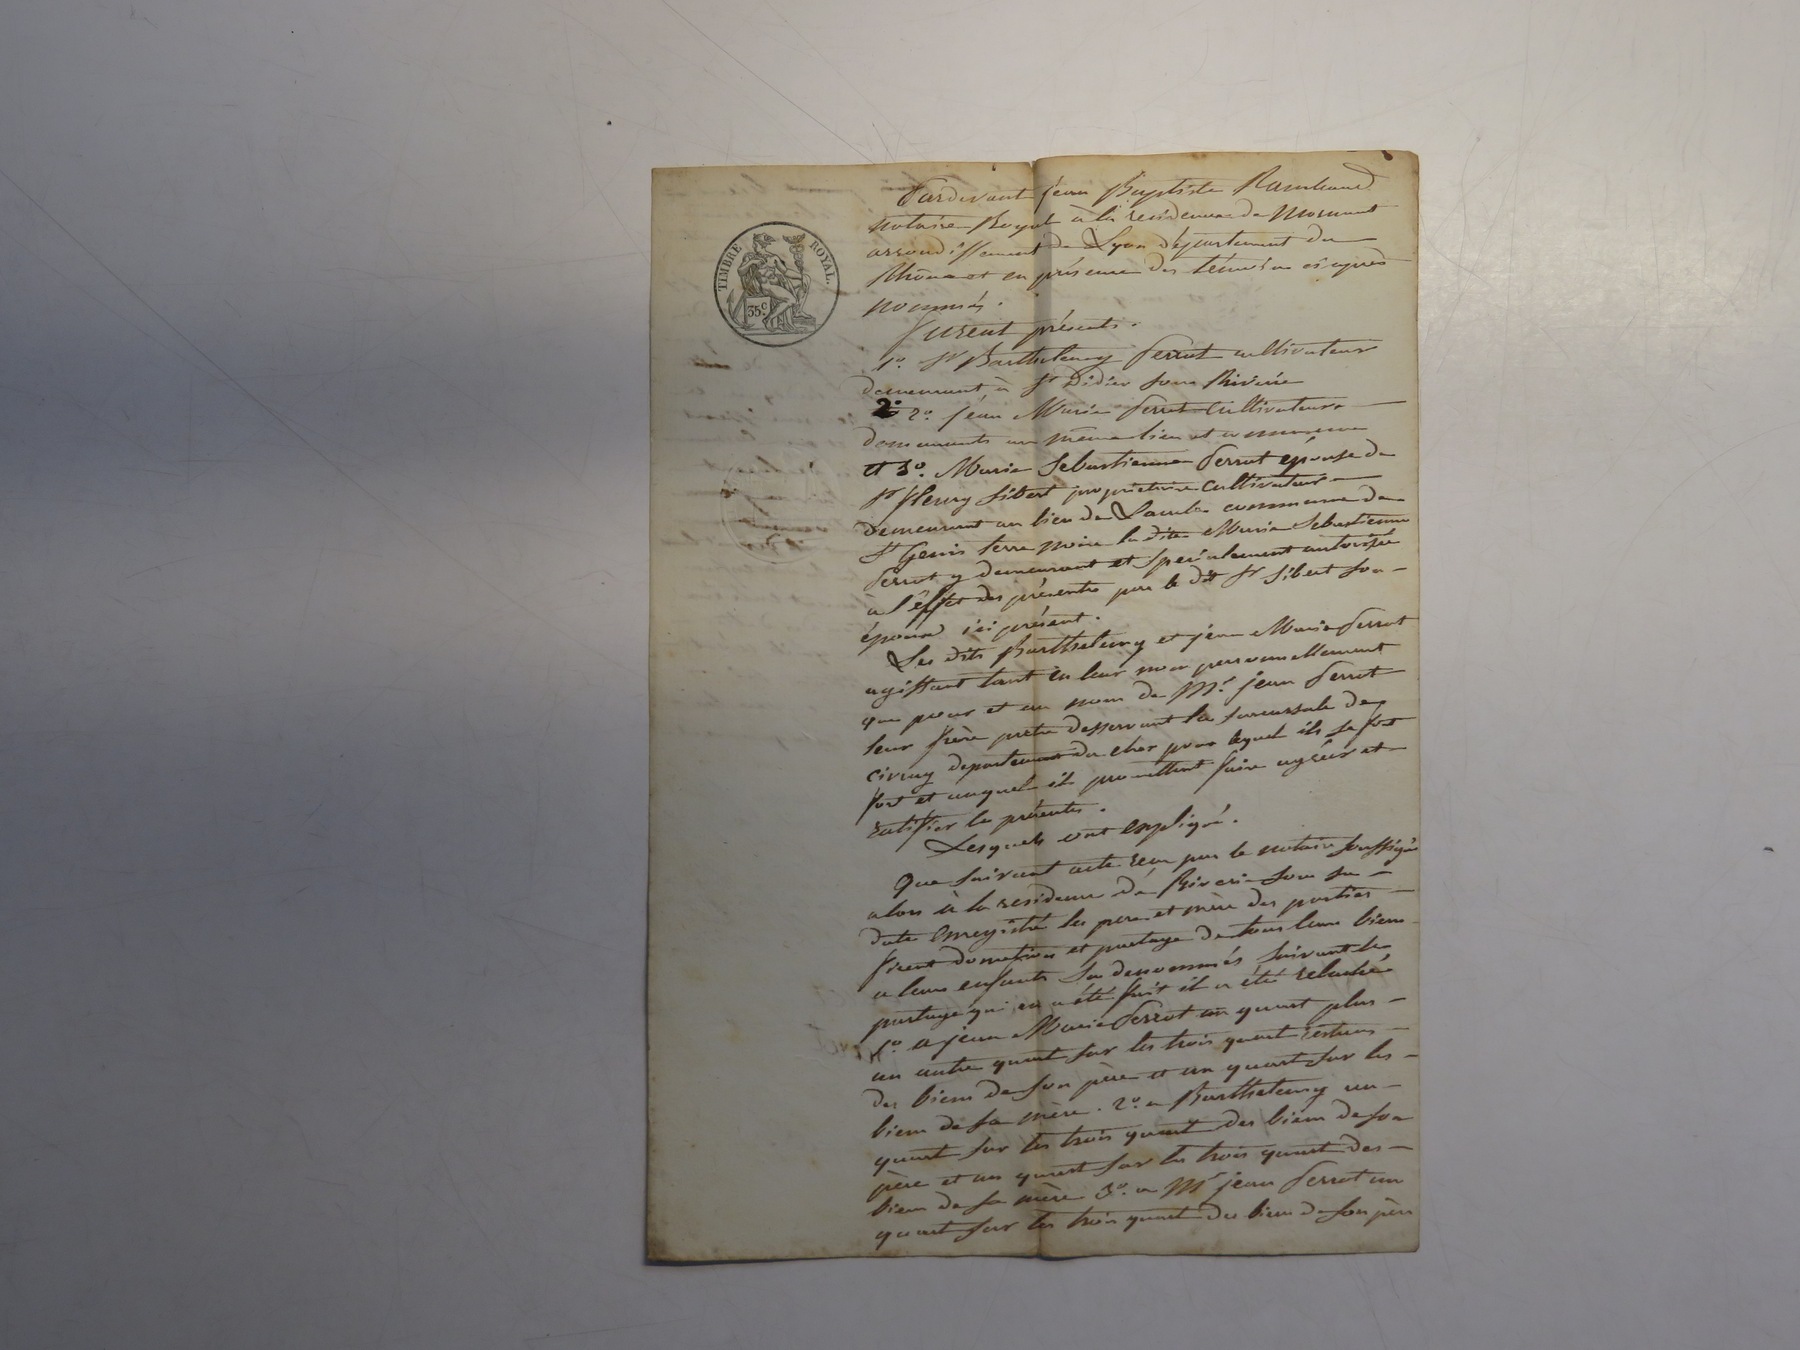 TIMBRE ROYAL.
35 c
Pardevant jean Baptiste Rambaud
notaire Royal à la residence de Mornant
arrondissement de Lyon département du
Rhône et en présence des témoins ci après
nommés.
furent présents.
1o. Sr Barthelemy Perrot cultivateur
demeurant à St Didier sous Riverie
2o 2o. jean Marie Perrot Cultivateur
demeurants au même lieu et commune
et 3o. Marie Sebastienne Perrot épouse de
Sr fleury Sibert propriétaire Cultivateur
demeurant au lieu de commune de
St Genis terre noire la dite Marie Sebastienne
Perrot y demeurant et specialement autorisée
à l'effet des présentes par le dit Sr Sibert son
époux ici présent.
Les dits Barthelemy et jean Marie Perrot
agissant tant en leur nom personnellement
que pour et au nom de Mr. jean Perrot
leur frère pretre desservant la succursale de
civray departement du cher pour lequel ils se font
fort et auquel ils promettent faire agréer et
ratifier les présentes.
Lesquels ont expliqué.
Que suivant acte reçu par le notaire soussigné
alors à la residence de Riverie sous sa
date enregistré les pere et mère des parties
firent donation et partage de tous leurs biens
a leurs enfants sus denommés suivant le
partage qui en a été fait il a été relaché
1o. a jean Marie Perrot un quart plus
un autre quart sur les trois quart restans
des biens de son père et un quart sur les
biens de sa mère. 2o. a Barthelemy un
quart sur les trois quart des biens de son
père et un quart sur les trois quart des
biens de sa mère 3o. a Mr jean Perrot un
quart sur les trois quart des biens de son père